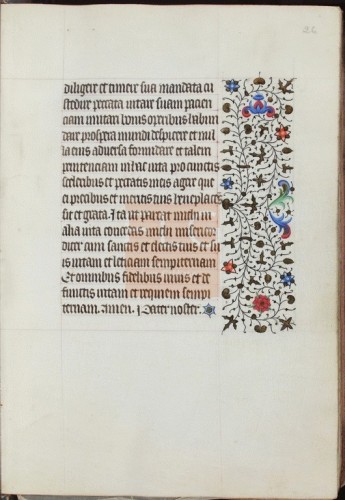 26
diligere et timere sua mandata cu
stodire peccata vitare suam pacien
ciam imitari bonis operibus habun
dare prospera mundi despicere et nul
la eius adversa formidare et talem
penitenciam in hac vita pro cunctis
sceleribus et peccatis meis agere que
ei precibus et meritis tuis beneplacita
sit et grata. Ita ut parcat michi in
alia vita concedas michi misericor
diter cum sanctis et electis tuis et su
is vitam et leticiam sempiternam
Et omnibus fidelibus vivis et de
functis vitam et requiem sempi
ternam. amen. Pater noster.